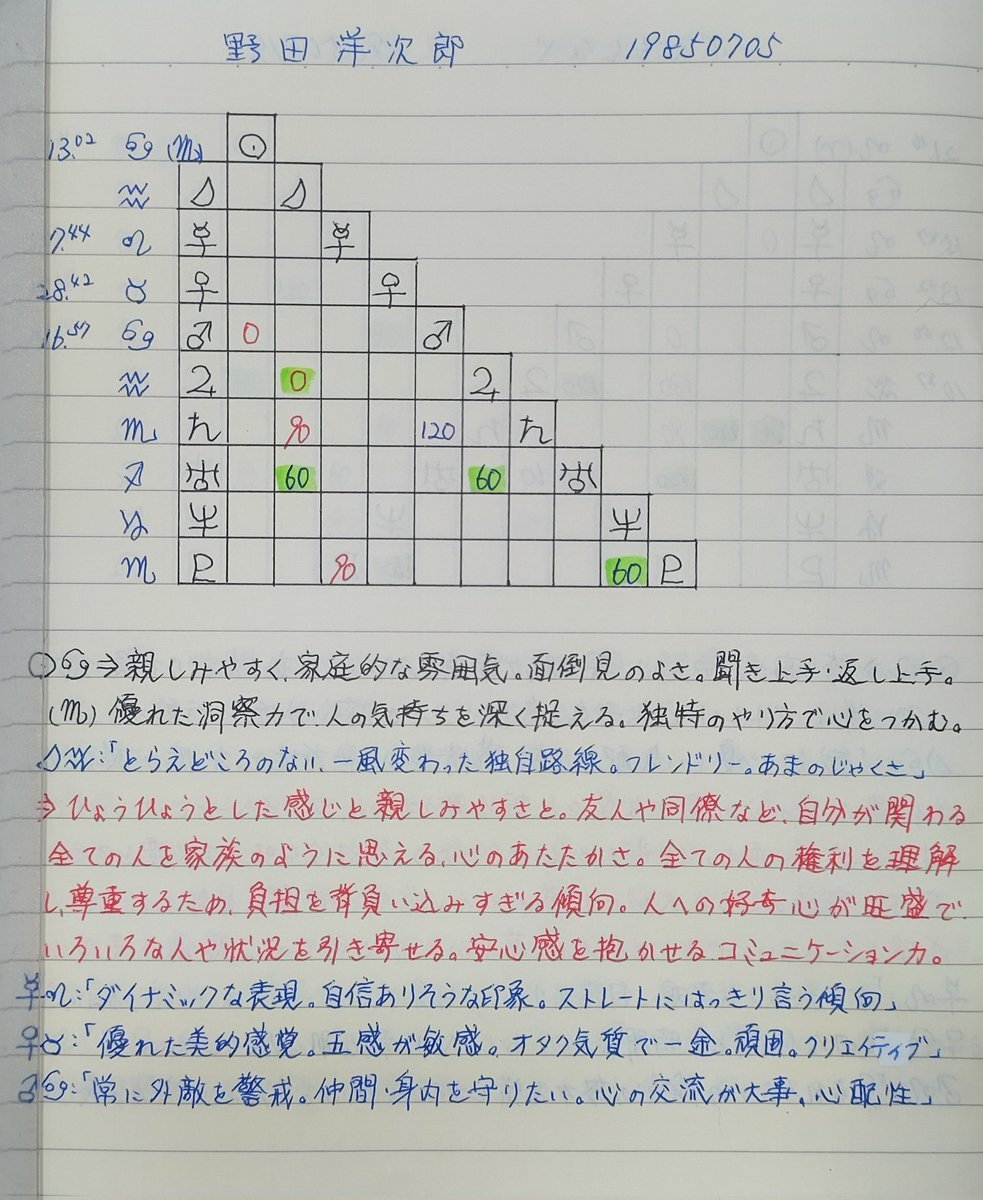 野田洋次郎 19850705
13.02 ♋ (♏) ☉
♒ ☽ ☽
7.44 ♌ ☿ ☿
28.42 ♉ ♀ ♀
16.57 ♋ ♂ 0 ♂
♒ ♃ 0 ♃
♏ ♄ 90 120 ♄
♐ ♅ 60 60 ♅
♑ ♆ ♆
♏ ♇ 90 60 ♇
☉♋⇒親しみやすく、家庭的な雰囲気。面倒見のよさ。聞き上手・返し上手。
(♏) 優れた洞察力で、人の気持ちを深く捉える。独特のやり方で心をつかむ。
☽♒:「とらえどころのない、一風変わった独自路線。フレンドリー。あまのじゃくさ」
⇒ひょうひょうとした感じと親しみやすさと。友人や同僚など、自分が関わる
全ての人を家族のように思える、心のあたたかさ。全ての人の権利を理解
し、尊重するため、負担を背負い込みすぎる傾向。人への好奇心が旺盛で、
いろいろな人や状況を引き寄せる。安心感を抱かせるコミュニケーション力。
☿♌:「ダイナミックな表現。自信ありそうな印象。ストレートにはっきり言う傾向」
♀♉:「優れた美的感覚。五感が敏感。オタク気質で一途。頑固。クリエイティブ」
♂♋:「常に外敵を警戒。仲間・身内を守りたい。心の交流が大事。心配性」